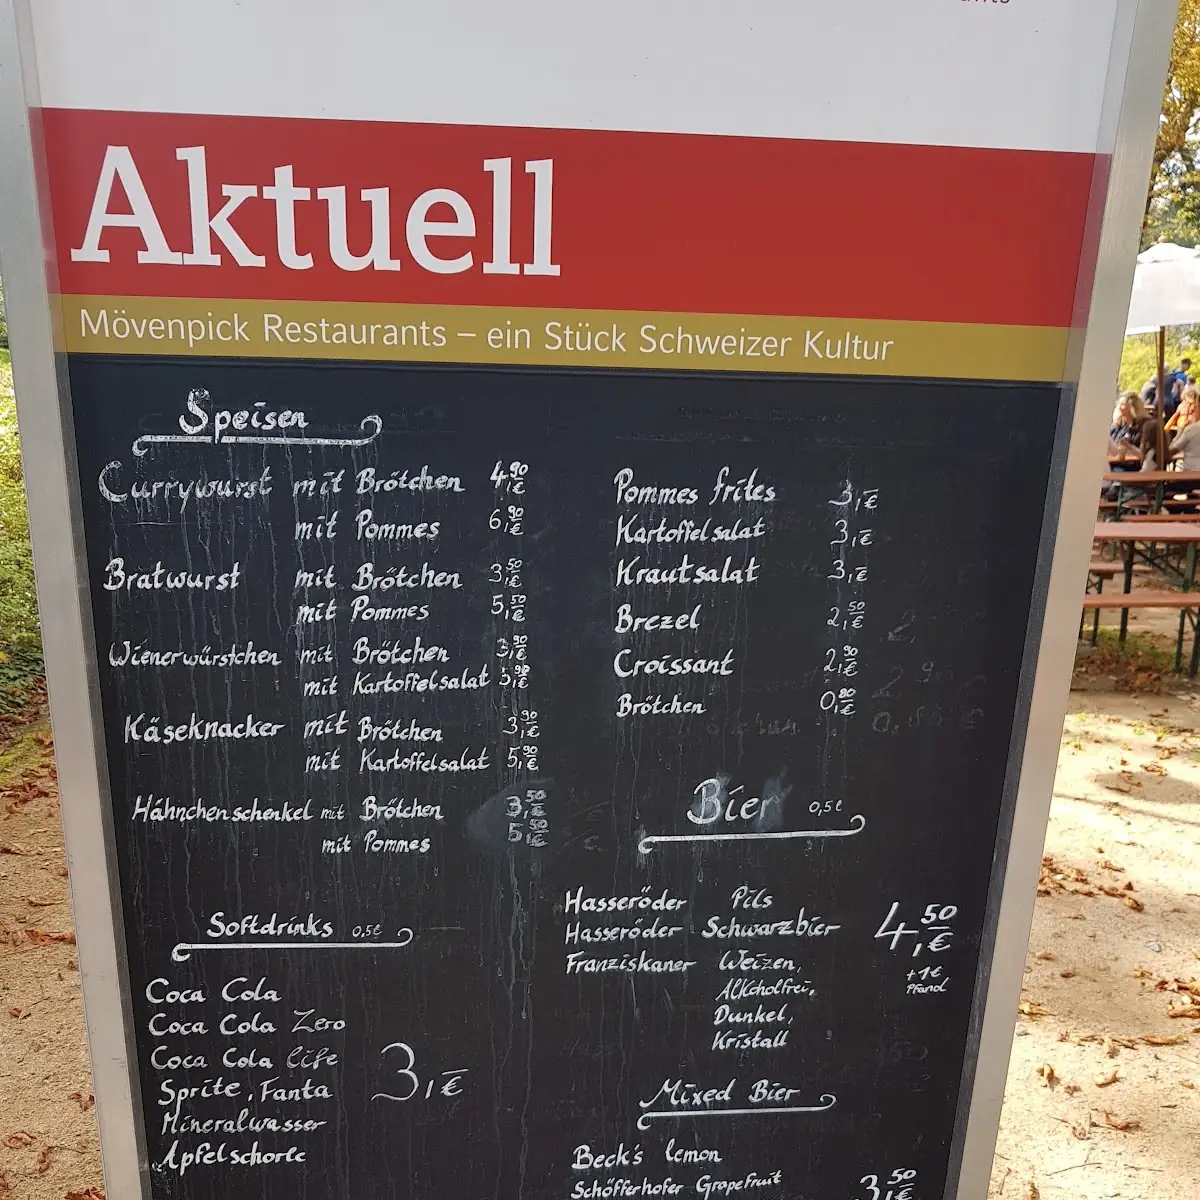 Aktuell
Mövenpick Restaurants – ein Stück Schweizer Kultur
Speisen
Currywurst mit Brötchen 4,90 €
mit Pommes 6,90 €
Bratwurst mit Brötchen 3,50 €
mit Pommes 5,50 €
Wienerwürstchen mit Brötchen 3,90 €
mit Kartoffelsalat 5,90 €
Käseknacker mit Brötchen 3,90 €
mit Kartoffelsalat 5,90 €
Hähnchenschenkel mit Brötchen 3,50 €
mit Pommes 5,50 €
Softdrinks 0,5ℓ
Coca Cola
Coca Cola Zero
Coca Cola life
Sprite, Fanta
Mineralwasser
Apfelschorle
3,- €
Pommes frites 3,- €
Kartoffelsalat 3,- €
Krautsalat 3,- €
Brezel 2,50 €
Croissant 2,90 €
Brötchen 0,80 €
Bier 0,5ℓ
Hasseröder Pils
Hasseröder Schwarzbier
Franziskaner Weizen,
Alkoholfrei,
Dunkel,
Kristall
4,50 €
+1€,
Pfand
Mixed Bier
Beck's lemon
Schöfferhofer Grapefruit
3,50 €